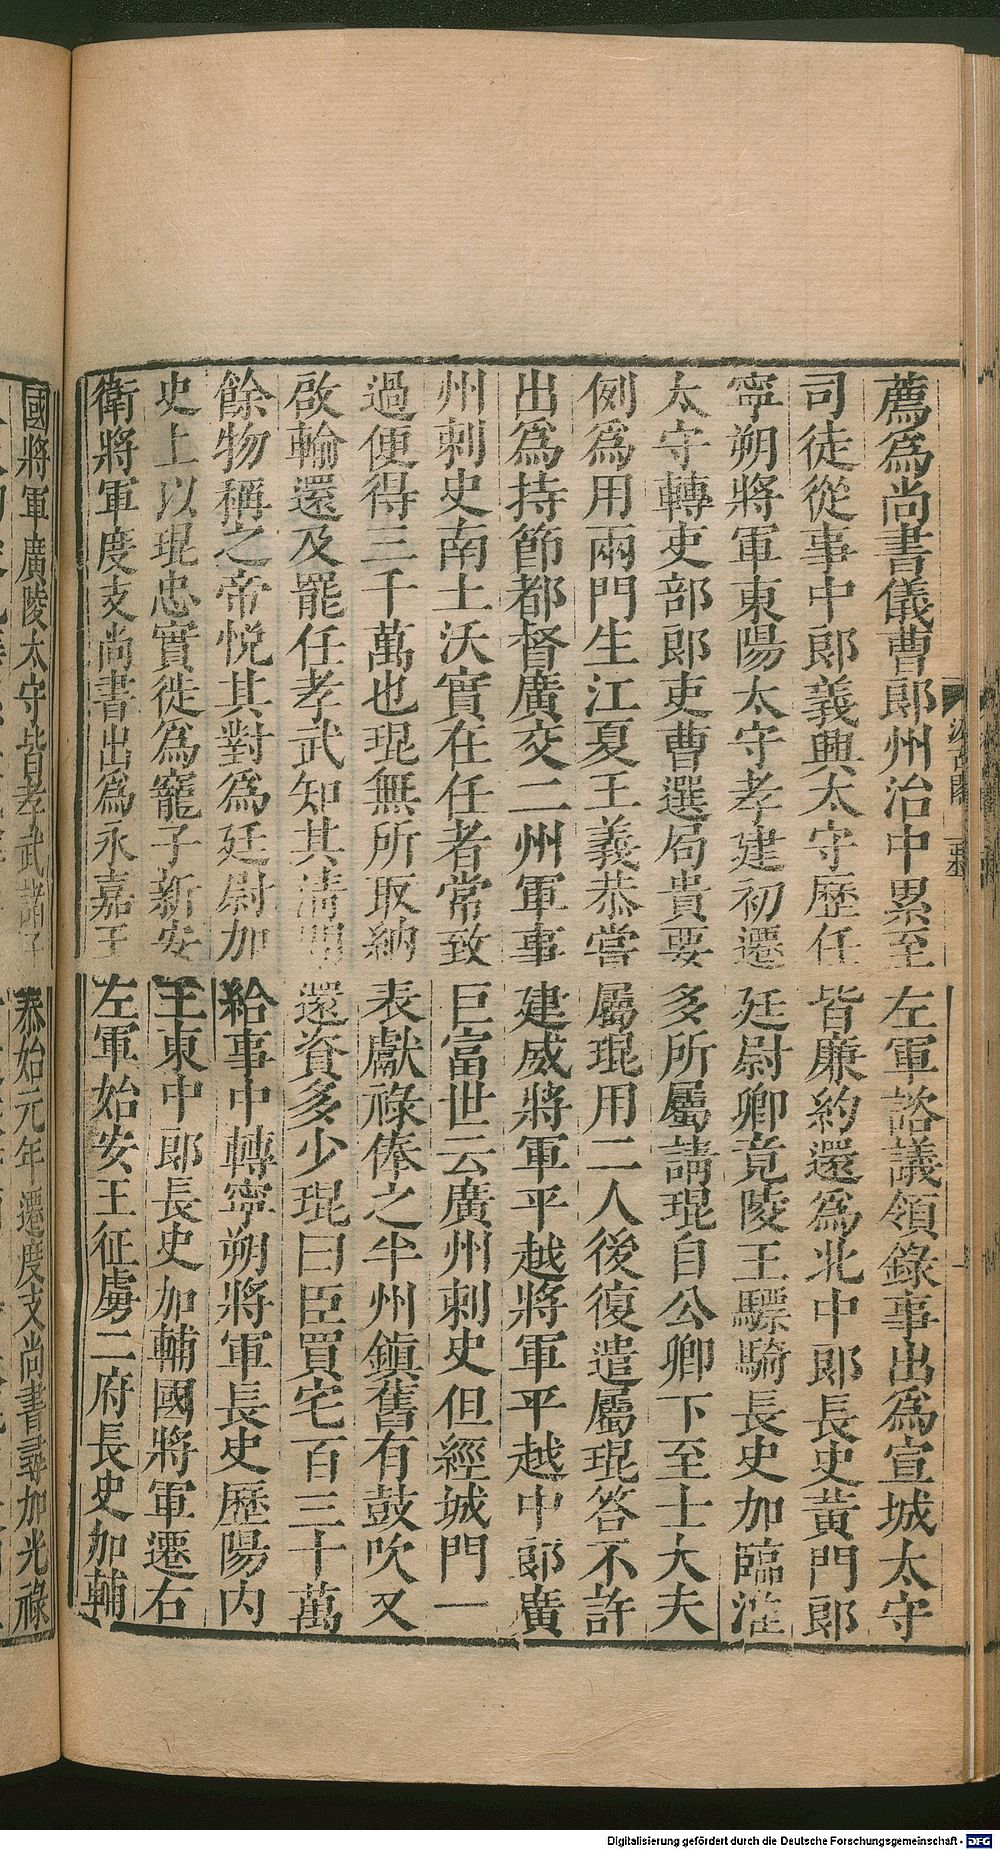 薦爲尚書儀曹郎州治中累至左軍諮議領錄事出爲宣城太守
司徒從事中郎義興太守歷任皆廉約還爲北中郎長史黃門郎
寧朔將軍東陽太守孝建初遷廷尉卿竟陵王驃騎長史加臨淮
太守轉吏部郎吏曹選局貴要多所屬請琨自公卿下至士大夫
例爲用兩門生江夏王義恭嘗屬琨用二人後復遣屬琨答不許
出爲持節都督廣交二州軍事建威將軍平越將軍平越中郎廣
州刺史南土沃實在任者常致巨富世云廣州刺史但經城門一
過便得三千萬也琨無所取納表獻祿俸之半州鎮舊有鼓吹又
啟輸還及罷任孝武知其清問還資多少琨曰臣買宅百三十萬
餘物稱之帝悅其對爲廷尉加給事中轉寧朔將軍長史歷陽內
史上以琨忠實徙爲寵子新安王東中郎長史加輔國將軍遷右
衛將軍度支尚書出爲永嘉王左軍始安王征虜二府長史加輔
國將軍廣陵太守皆孝武諸子泰始元年遷度支尚書尋加光祿
Digitalisierung gefördert durch die Deutsche Forschungsgemeinschaft - DFG